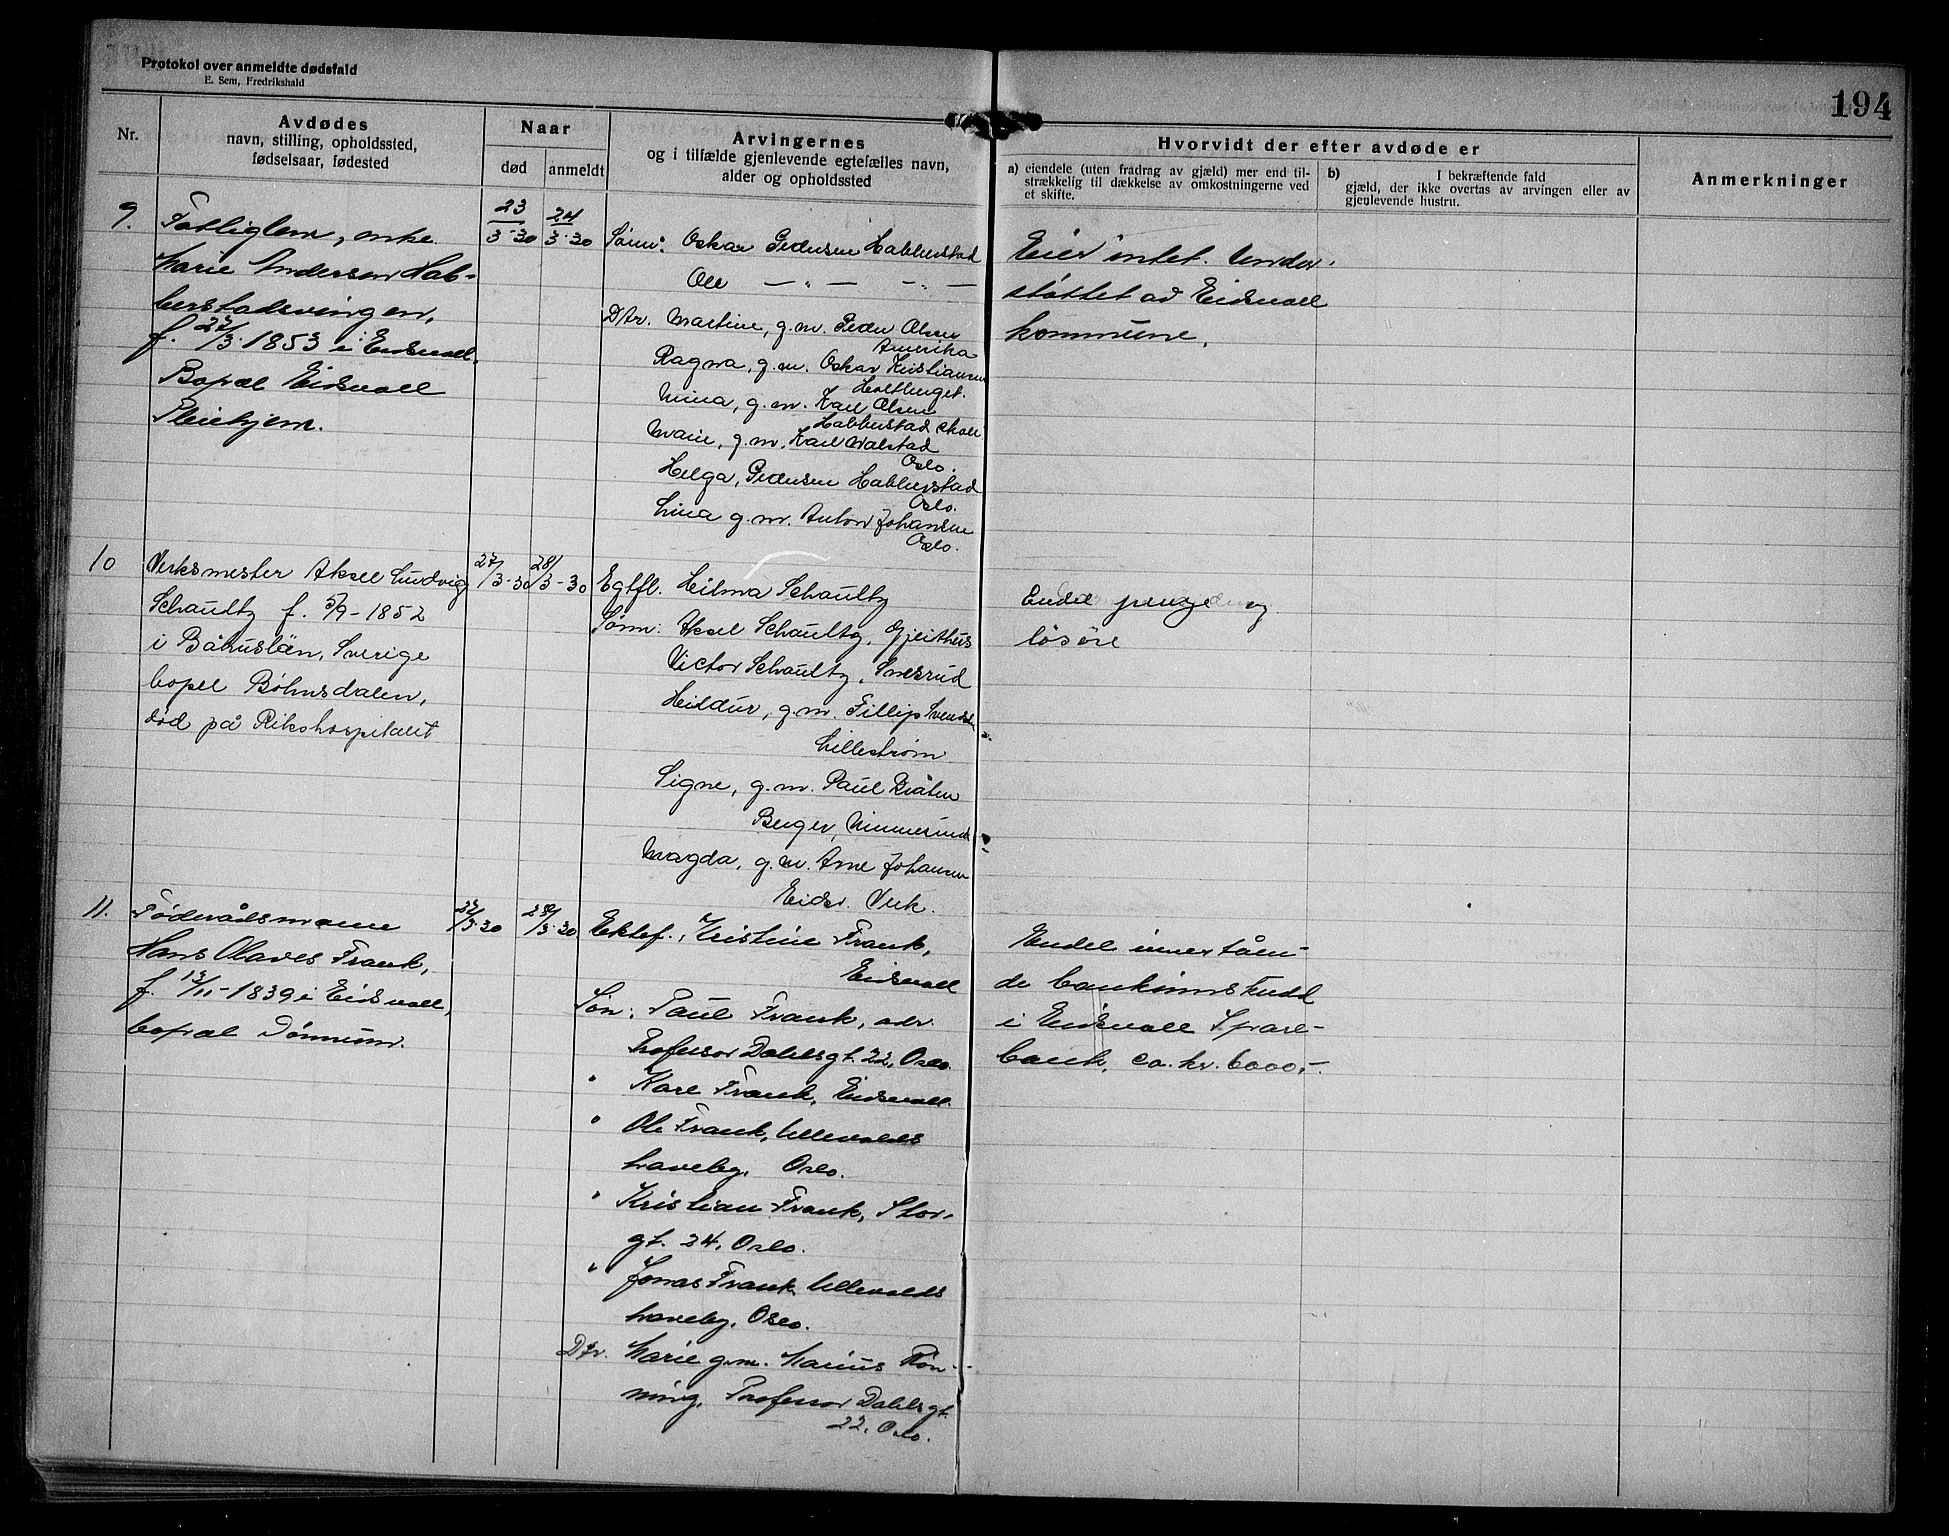 Protokol over anmeldte dødsfald
E. Sem, Fredrikshald
194
Nr.
Avdødes
navn, stilling, opholdssted,
fødselsaar, fødested
Naar
død
anmeldt
Arvingernes
og i tilfælde gjenlevende egtefælles navn,
alder og opholdssted
Hvorvidt der efter avdøde er
a) eiendele (uten fradrag av gjæld) mer end til-
strækkelig til dækkelse av omkostningerne ved
et skifte.
b) I bekræftende fald
gjæld, der ikke overtas av arvingen eller av
gjenlevende hustru.
Anmerkninger
9.
Fattiglem, enke
Marie Andersen Hab-
berstadsvingen,
f. 27/3. 1853 i Eidsvoll.
Bopæl Eidsvoll
Pleiehjem.
23/3-30
24/3-30
Sønn: Oskar Pedersen Habberstad
Ole — " — — " —
Dtr. Martine, g.m. Peder Olsen
Amerika
Ragna, g.m. Oskar Kristiansen
Holtlunget.
Mina, g.m. Karl Olsen
Habberstad skole
Marie, g.m. Karl Malstad
Oslo.
Helga, Pedersen Habberstad
Oslo.
Lina g.m. Anton Johansen
Oslo.
Eier intet. Under-
støttet av Eidsvoll
kommune.
10
Verksmester Aksel Ludvig
Schaultz f. 5/9-1852
i Båhuslän, Sverige
bopel Bøhnsdalen,
död på Rikshospitalet
27/3-30
28/3-30
Egtfl. Hilma Schaultz
Sønn: Aksel Schaultz, Gjeithus
Victor Schaultz, Snesrud
Hildur, g.m. Fillip Svendsen
Lillestrøm
Signe, g.m. Paul Bråten
Berger, Minnesund
Magda, g.m. Arne Johansen
Eidsv. Verk.
Endel penge og
løsøre
11.
Föderådsmann
Hans Olaves Frank,
f. 13/11-1839 i Eidsvoll,
bopæl Dønnum.
22/3.30
29/3.30
Ektef., Kristine Frank,
Eidsvoll
Søn: Paul Frank, adr.
Professor Dahlsgt. 22, Oslo.
" Kare Frank, Eidsvoll.
" Ole Frank, Ullevolds
haveby, Oslo.
" Kristian Frank, Stor-
gt. 24, Oslo.
" Jonas Frank Ullevolds
haveby, Oslo.
Dtr. Marie g.m. Marius Røn-
ning, Professor Dahlsgt.
22, Oslo.
Endel innestående
de bankinnskudd
i Eidsvoll Spare-
bank, ca. kr. 6000,-.